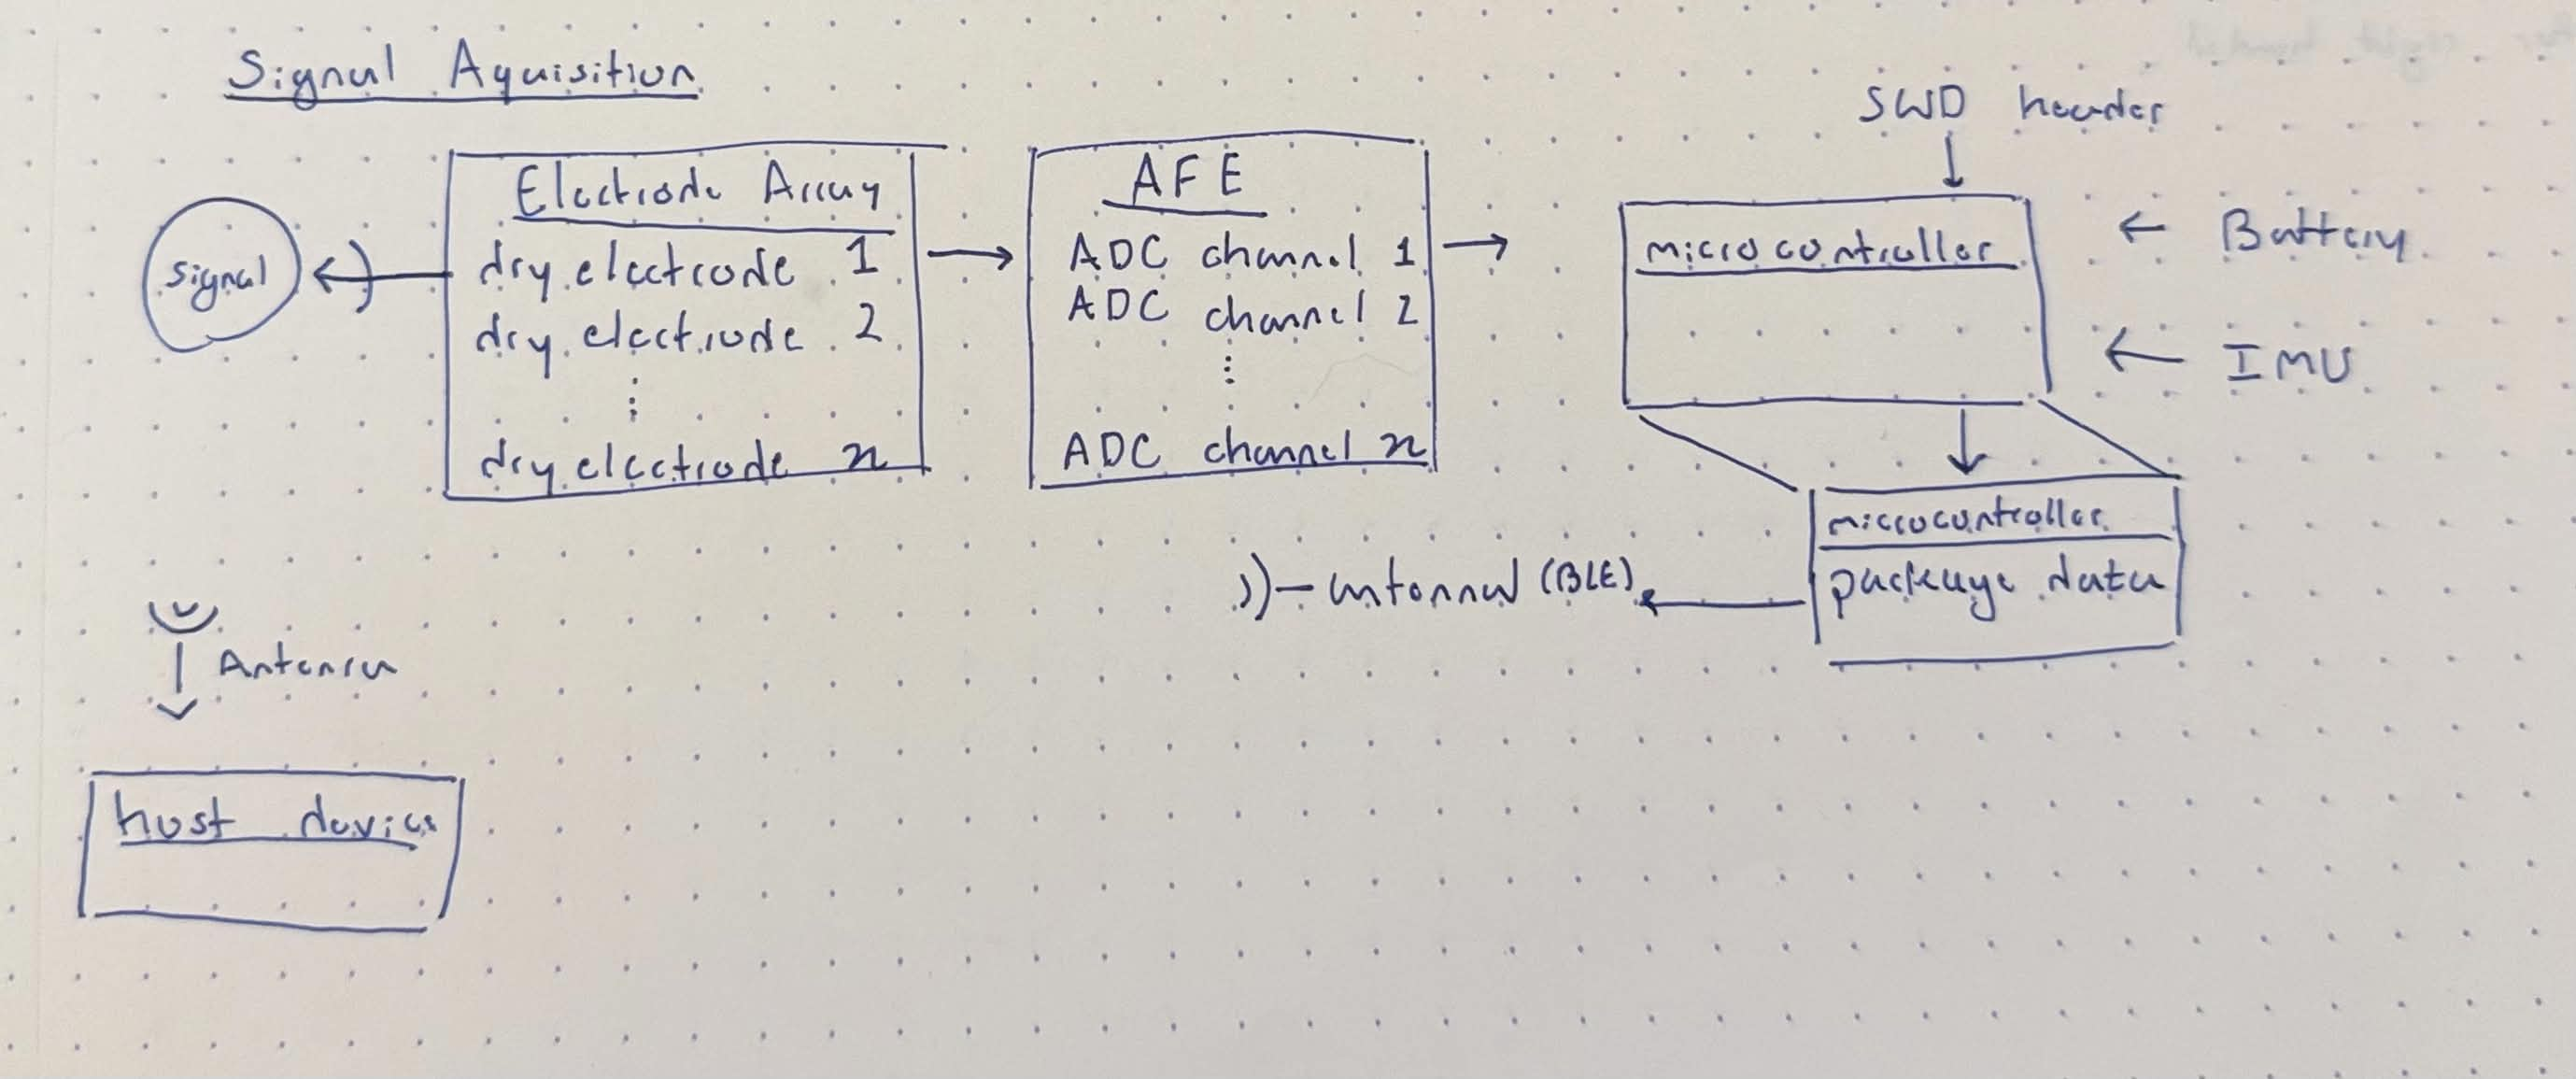 Signal Aquisition
SWD header
Electrode Array
dry electrode 1
dry electrode 2
⋮
dry electrode n
signal
AFE
ADC channel 1
ADC channel 2
⋮
ADC channel n
microcontroller
Battery
IMU
microcontroller
package data
antenna (BLE)
Antenna
host device